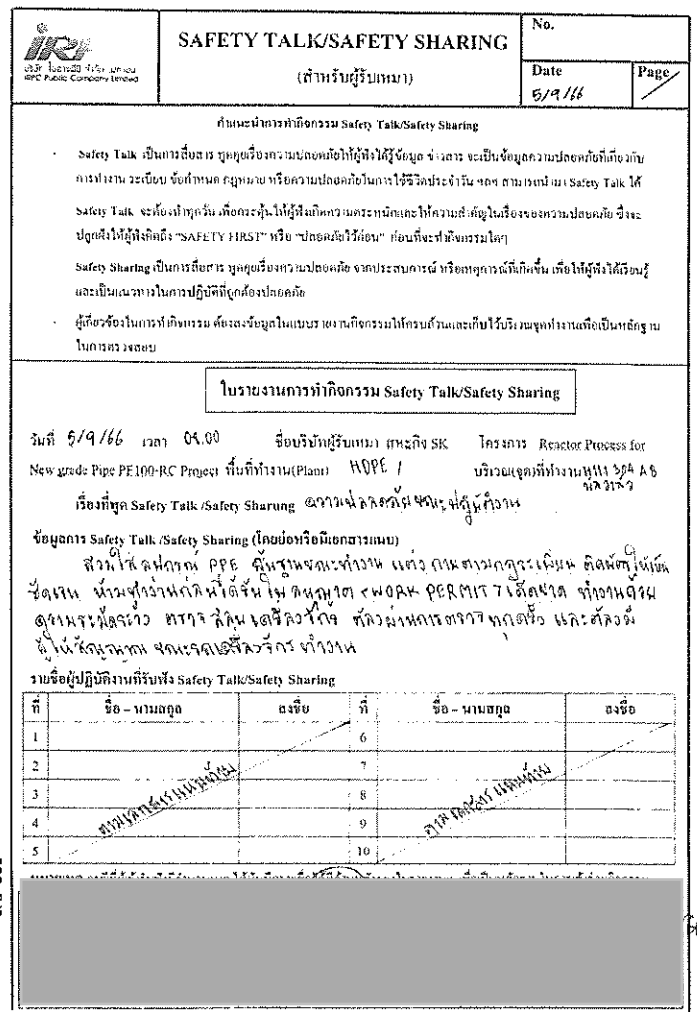 IRPC
บริษัท ไออาร์พีซี จำกัด (มหาชน)
IRPC Public Company Limited
SAFETY TALK/SAFETY SHARING
(สำหรับผู้รับเหมา)
No.
Date
5/9/66
Page
คำแนะนำการทำกิจกรรม Safety Talk/Safety Sharing
- Safety Talk เป็นการสื่อสาร พูดคุยเรื่องความปลอดภัยให้ผู้ฟังได้รู้ข้อมูล ข่าวสาร จะเป็นข้อมูลความปลอดภัยที่เกี่ยวกับ
การทำงาน ระเบียบ ข้อกำหนด กฎหมาย หรือความปลอดภัยในการใช้ชีวิตประจำวัน ฯลฯ สามารถนำมา Safety Talk ได้
Safety Talk จะต้องทำทุกวัน เพื่อกระตุ้นให้ผู้ฟังเกิดความตระหนักและให้ความสำคัญในเรื่องของความปลอดภัย ซึ่งจะ
ปลูกฝังให้ผู้ฟังคิดถึง "SAFETY FIRST" หรือ "ปลอดภัยไว้ก่อน" ก่อนที่จะทำกิจกรรมใดๆ
Safety Sharing เป็นการสื่อสาร พูดคุยเรื่องความปลอดภัย จากประสบการณ์ หรือเหตุการณ์ที่เกิดขึ้น เพื่อให้ผู้ฟังได้เรียนรู้
และเป็นแนวทางในการปฏิบัติที่ถูกต้องปลอดภัย
- ผู้เกี่ยวข้องในการทำกิจกรรม ต้องลงข้อมูลในแบบรายงานกิจกรรมให้ครบถ้วนและเก็บไว้บริเวณจุดทำงานเพื่อเป็นหลักฐาน
ในการตรวจสอบ
ใบรายงานการทำกิจกรรม Safety Talk/Safety Sharing
วันที่ 5/9/66 เวลา 08.00 ชื่อบริษัทผู้รับเหมา สหะกิจ SK โครงการ Reactor Process for
New grade Pipe PE100-RC Project พื้นที่ทำงาน(Plant) HDPE 1 บริเวณ(จุด)ที่ทำงาน
เรื่องที่พูด Safety Talk /Safety Sharung ความปลอดภัยขณะปฏิบัติงาน
ข้อมูลการ Safety Talk /Safety Sharing (โดยย่อหรือมีเอกสารแนบ)
สวมใส่อุปกรณ์ PPE พื้นฐานขณะทำงาน แต่งกายตามกฎระเบียบ ติดบัตรให้เห็น
ชัดเจน ห้ามทำงานก่อนได้รับใบอนุญาต "WORK PERMIT" เด็ดขาด ทำงานด้วย
ความระมัดระวัง ตรวจสอบเครื่องจักร ต้องผ่านการตรวจทุกครั้ง และต้องมี
ผู้ให้สัญญาณ ขณะรถเครื่องจักรทำงาน
รายชื่อผู้ปฏิบัติงานที่รับฟัง Safety Talk/Safety Sharing
ที่ ชื่อ – นามสกุล ลงชื่อ ที่ ชื่อ – นามสกุล ลงชื่อ
1 6
2 7
3 8
4 9
5 10
ตามเอกสารแนบท้าย ตามเอกสารแนบท้าย